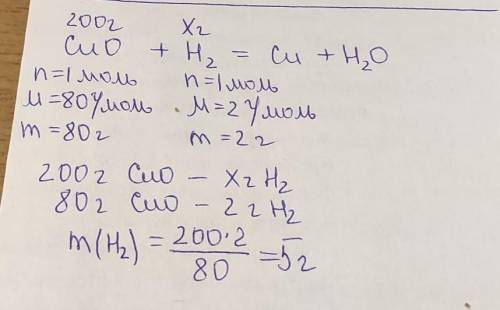 200г Xг
CuO + H₂ = Cu + H₂O
n=1моль n=1моль
M=80г/моль M=2г/моль
m=80г m=2г
200г CuO – Xг H₂
80г CuO – 2г H₂
m(H₂) = 200·2 / 80 = 5г